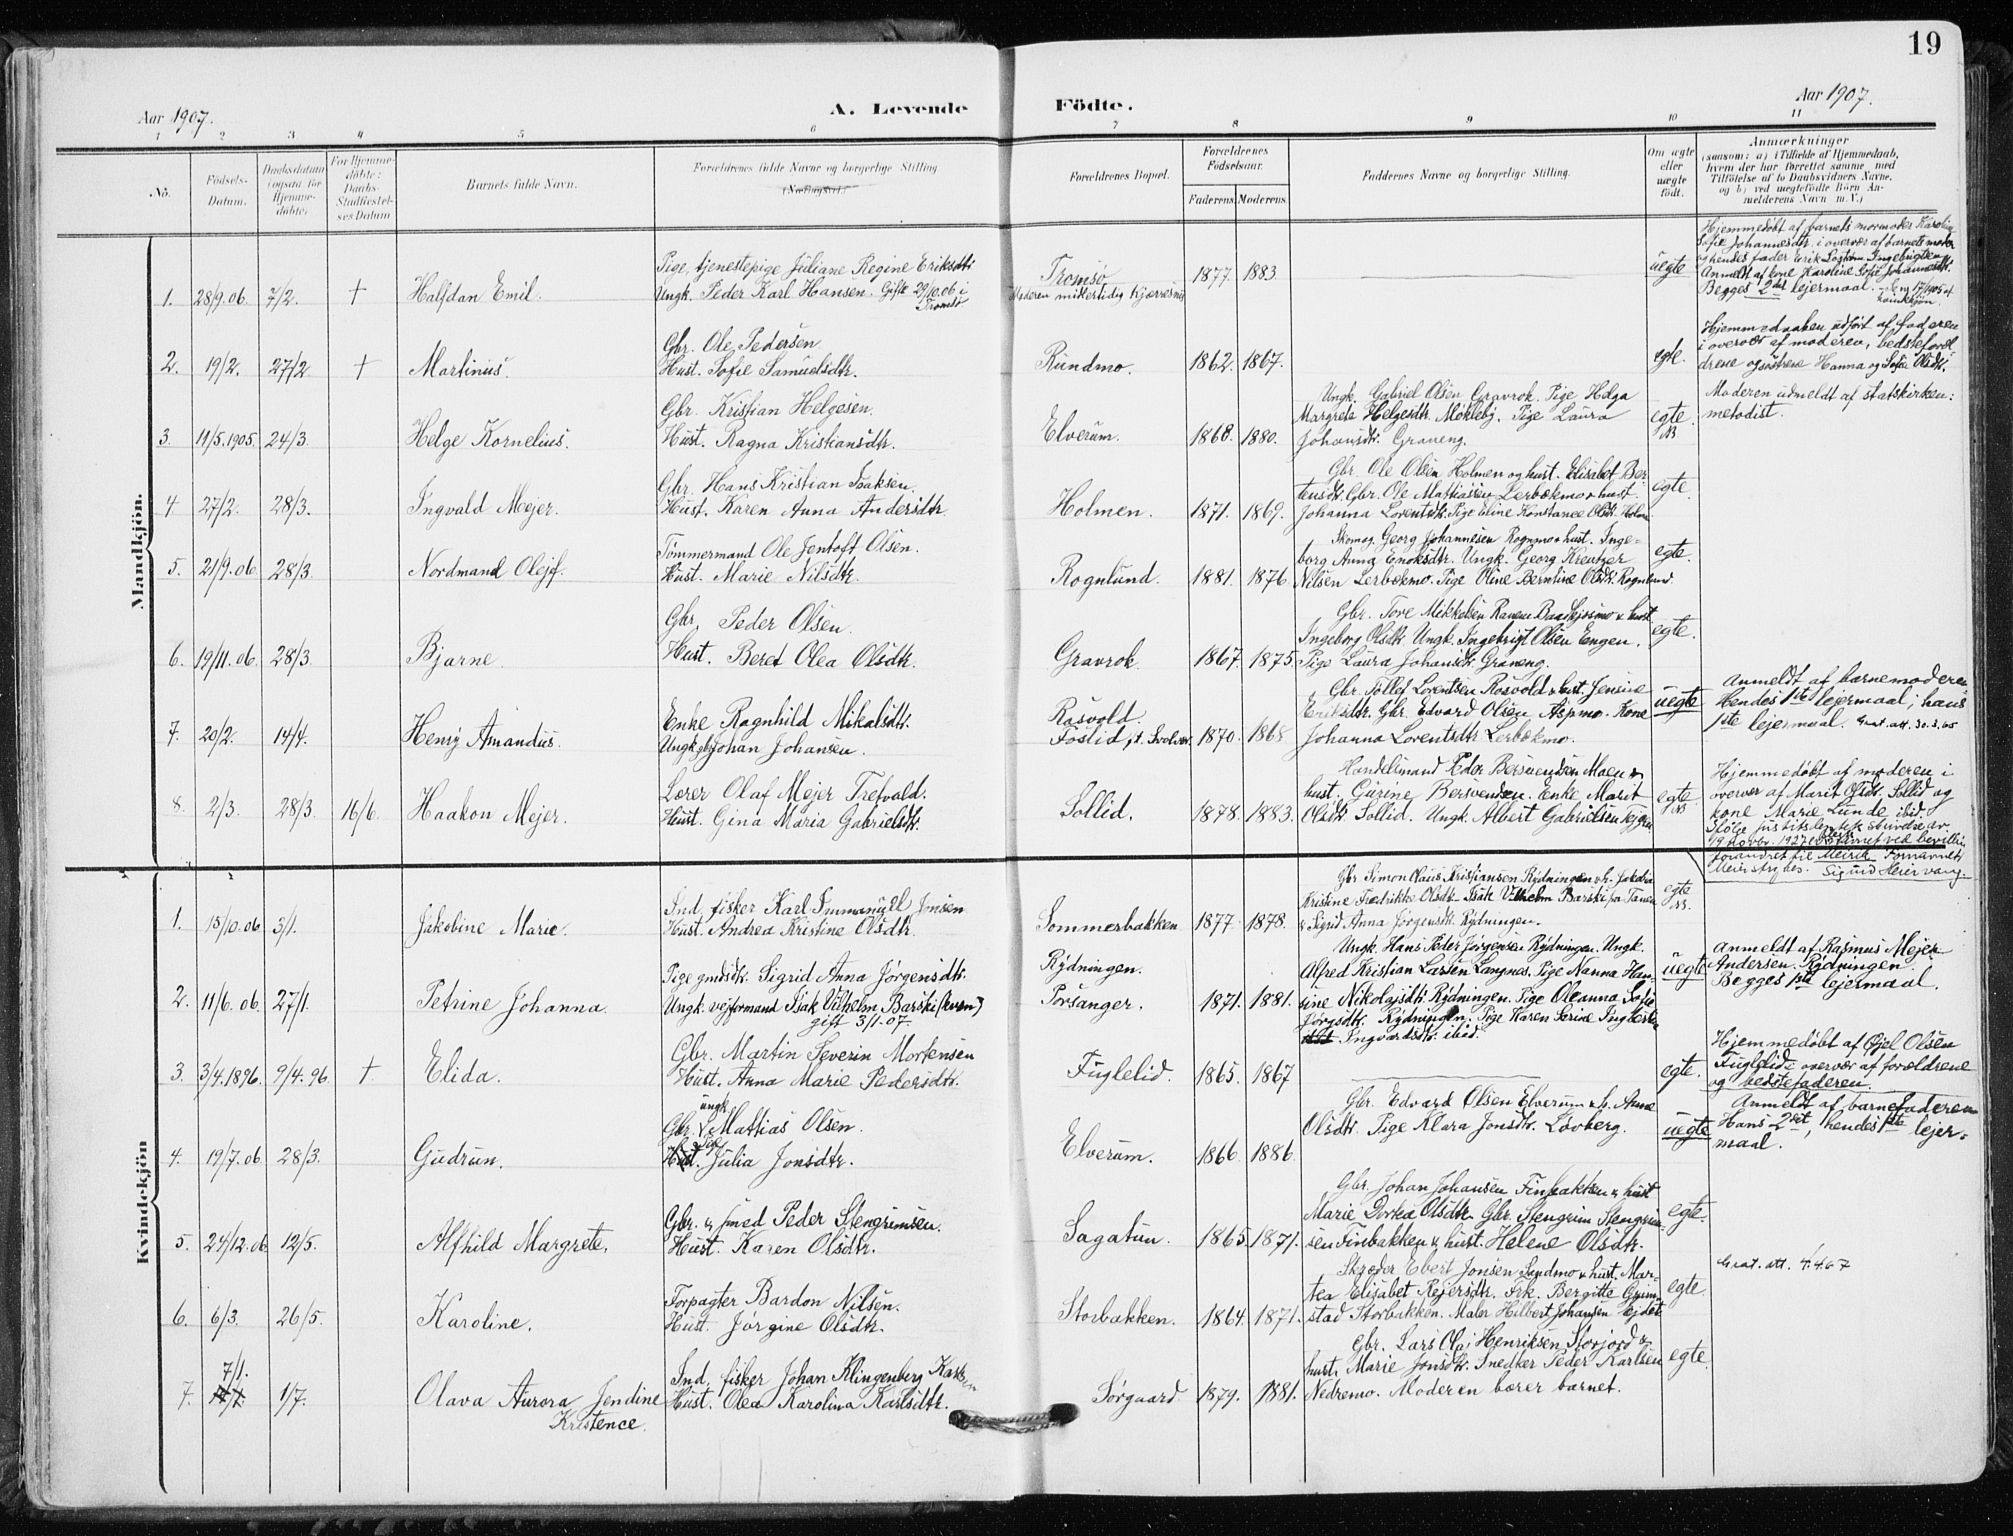 19
Aar 1907.
A. Levende
Födte.
Aar 1907.
1 2 3 4 5 6 7 8 9 10 11
No.
Födsels-
Datum.
Daabsdatum
(ogsaa for
Hjemme-
döbte)
For Hjemme-
döbte:
Daabs-
Stadfæstel-
ses Datum
Barnets fulde Navn.
Forældrenes fulde Navne og borgerlige Stilling
Forældrenes Bopæl.
Forældrenes
Födselsaar.
Faderens. Moderens.
Faddernes Navne og borgerlige Stilling.
Om ægte
eller
uægte
födt.
Anmærkninger
(saasom: a) i Tilfælde af Hjemmedaab,
hvem der har forrettet samme med
Tilföielse af to Daabsvidners Navne,
og b) ved uægtefödte Börn An-
melderens Navn m. V.)
Mandkjön.
1. 28/9.06. 7/2. † Halfdan Emil.
Pige, tjenestepige Juliane Regine Eriksdtr
Ungk. Peder Karl Hansen. Gifte 29/10.06 i
Tromsø
Tromsø
Moderen midlertidig Kjærresnes
1877. 1883
uegte
Hjemmedøbt af barnets mormoder Karoline
Sofie Johannesdtr. i overvær af barnets moder
Anmeldt af kone Karoline Sofie Johannesdtr.
Begges 2det lejermaal.
2. 19/2. 27/2 † Martinus.
Gbr. Ole Pedersen
Hust. Sofie Samuelsdtr.
Rundmo. 1862. 1867.
egte.
Hjemmedaaben udført af faderen
i overvær af moderen, bedstefoxl
drene og søstrene Hanna og Sofie Olsdtr.
3. 11/5.1905. 24/3. Helge Kornelius.
Gbr. Kristian Helgesen.
Hust. Ragna Kristiansdtr.
Elverum. 1868. 1880.
Ungk. Gabriel Olsen Gravrok. Pige Helga
Margrete Helgesdtr. Mokleby. Pige Laura
Johansdtr. Graneng.
egte.
Moderen udmeldt af statskirken:
metodist.
4 27/2. 28/3. Ingvald Mejer.
Gbr. Hans Kristian Isaksen.
Hust. Karen Anna Andersdtr
Holmen. 1871. 1869.
Gbr. Ole Olsen Holmen og hust. Elisabet Ber-
tensdtr. Gbr. Ole Mattiassen Lerbækmo & hust.
Johanna Lorentsdtr. Pige Eline Konstance Olsdtr. Holmen
egte.
5. 21/9.06. 28/3. Nordmand Olejf.
Tømmermand Ole Jentoft Olsen.
Hust. Marie Nilsdtr.
Rognlund. 1881. 1876.
Skomag. Georg Johannesen Rognmo & hust. Inge-
borg Anna Enoksdtr. Ungk. Georg Kreutzer
Nilsen Lerbækmo. Pige Oline Berntine Olsdtr. Rognlund
egte.
6. 19/11.06. 28/3. Bjarne.
Gbr. Peder Olsen.
Hust. Beret Olea Olsdtr.
Gravrok 1867. 1875.
Gbr. Tore Mikkelsen & hust
Ingeborg Olsdtr. Ungk. Ingebrigt Olsen Engen.
Pige Laura Johansdtr. Graneng.
egte.
7. 20/2. 14/4. Henry Amandus.
Enke Ragnhild Mikalsdtr.
Ungk. Johan Johansen.
Rosvold.
Foslid pt. Svolvær
1870. 1868
Gbr. Tollef Lorentsen Rosvold & hust. Jensine
Eriksdtr. Gbr. Edvard Olsen Aspmo. Kone
Johanna Lorentsdtr Lerbækmo.
uegte
Anmeldt af barnemoderen
Hendes 1ste lejermaal; hans
1ste lejermaal. Grat. att. 30.3.65
8. 2/3. 28/3 16/6. Haakon Mejer.
Lærer Olaf Mejer Trefvald.
Hust. Gina Maria Gabrielsdtr.
Sollid. 1878. 1883.
Handelsmand Peder Bersvendsen Moen &
hust. Gurine Bersvendsen. Enke Marit
Olsdtr. Sollid. Ungk. Albert Gabrielsen
egte
Hjemmedøbt af moderen i
overvær af Marit Olsdtr. Sollid og
kone Marie Lunde ibid.
forandret til Meirik. Fornavnet
Meier strykes. Sigurd Heiervang.
Kvindekjön
1. 15/10.06 3/1. Jakobine Marie.
Ind. fisker Karl Immanuel Jensen
Hust. Andrea Kristine Olsdtr.
Sommerbakken 1877. 1878.
Gbr Simon Olaus Kristiansen Rydningen & h. Jakobine
Kristine Fredrikke Olsdtr. Isak Vilhelm Barski fra Tanen
& Sigrid Anna Jørgensdtr. Rydningen.
egte
2. 11/6.06. 27/1. Petrine Johanna.
Pige gmdsdtr. Sigrid Anna Jørgensdtr.
Ungk. vejformand Isak Vilhelm Barski (kven)
gift 3/1.07.
Rydningen.
Porsanger. 1871. 1881.
Ungk. Hans Peder Jørgensen Rydningen. Ungk.
Alfred Kristian Larsen Langnes. Pige Nanna Han-
sine Nikolajsdtr. Rydningen. Pige Oleanna Sofie
Jørgsdtr. Rydningen. Pige Karen Serine
Ingvardsdtr. ibid.
uegte
Anmeldt af Rasmus Mejer
Andersen Rydningen.
Begges 1ste lejermaal.
3. 3/4.1896. 9/4.96. † Elida.
Gbr. Martin Severin Mortensen
Hust. Anna Marie Pedersdtr.
Fuglelid. 1865. 1867
egte.
Hjemmedøbt af Ojel Olsen
Fuglelid i overvær af forældrene
og bedstefaderen.
4. 19/7.06. 28/3. Gudrun.
ungk
Gbr. & Mattias Olsen.
Pige
Hust. Julia Jonsdtr.
Elverum. 1866. 1886.
Gbr. Edvard Olsen Elverum & h. Anne
Olsdtr. Pige Klara Jonsdtr. Løvberg.
uegte
Anmeldt af barnefaderen
Hans 2det, hendes 1ste lejer-
maal.
5. 24/12.06. 12/5. Alfhild Margrete.
Gbr. & smed Peder Stengrimsen.
Hust. Karen Olsdtr.
Sagatun. 1865. 1871.
Gbr. Johan Johansen Finbakken & hust
Marie Dorkea Olsdtr. Gbr. Stengrim Stengrim-
sen Finbakken & hust. Helene Olsdtr.
egte.
Grat. att. 4.4.67
6. 6/3. 26/5. Karoline.
Forpagter Bardon Nilsen.
Hust. Jørgine Olsdtr.
Storbakken. 1864. 1871.
Skræder Ebert Jonsen Sandmo & hust. Mar-
tea Elisabet Rejersdtr. Frk. Bergitte Grim-
stad Storbakken. Maler Hilbert Johansen Lejdet
egte.
7. 7/1. 1/7. Olava Aurora Jendine
Kristence.
Ind. fisker Johan Klingenberg Karlsen
Hust. Olea Karolina Karlsdtr.
Sørgaard. 1879. 1881.
Gbr. Lars Olaj Henriksen Storjord &
hust. Marie Jonsdtr. Snedker Peder Karlsen
Nedremo. Moderen bærer barnet.
egte.